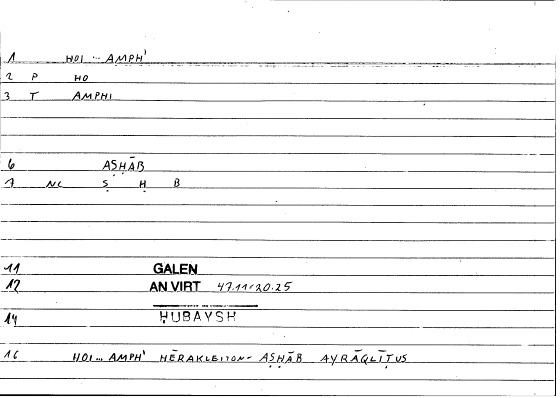 1 HOI ... AMPH'
2 P HO
3 T AMPHI
6 AṢḤĀB
7 NC Ṣ Ḥ B
11 GALEN
12 AN VIRT 47.11/20.25
14 ḤUBAYSH
16 HOI ... AMPH' HĒRAKLEITON- AṢḤĀB AYRĀQLĪṬUS